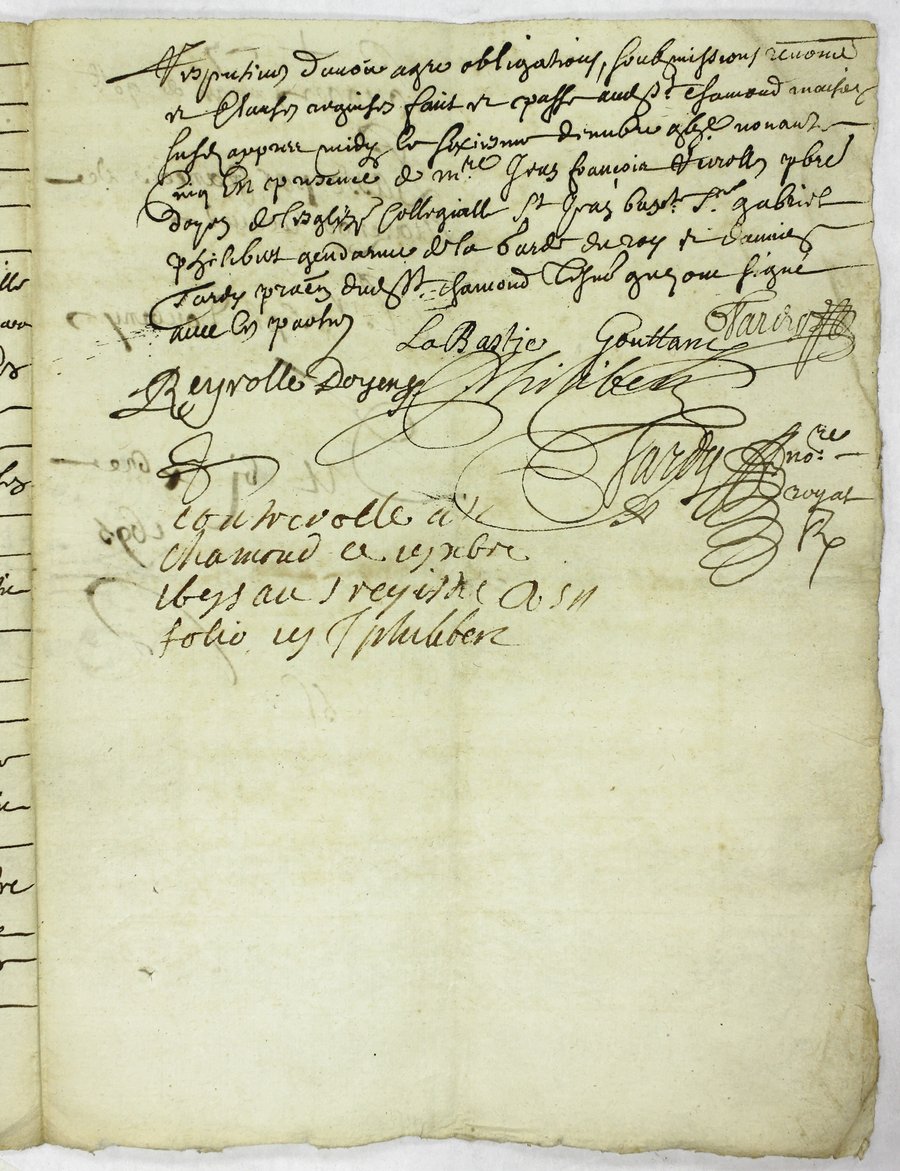 respectives d'avoir agre obligations, soubmissions renoncē
et clauses requises fait et passé aud St chamond maison
susd appres midy le sixieme decembre gbj.c nonant
cinq en presence de m.re Jean françois Reyrolle pbre
doyen de lesglize Collegialle St Jean bapt. Sr gabriel
philibert gendarme de la garde du roy et
Tardy praēn dud St chamond tesm quy ont signé
avec les parties
La Bastie Gouttans Tardy
Reyrolle Doyen Philibert
Tardy no.re
royal
Controolle a St
chamond ce 19 xbre
1695 au 5 registre
folio 19 philibert